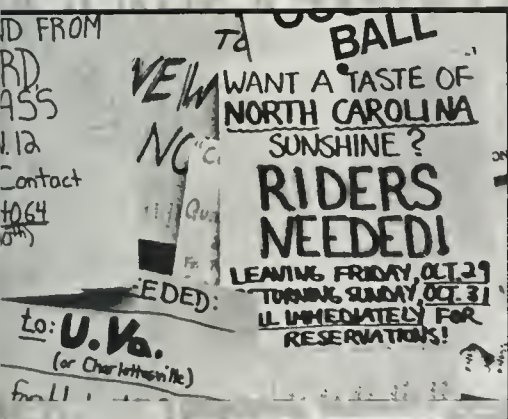 D FROM
RD
ASS
N. 12
Contact
to 64
To
BALL
WANT A TASTE OF
NORTH CAROLINA
SUNSHINE?
RIDERS
NEEDED!
LEAVING FRIDAY, OCT. 29
TURNING SUNDAY, OCT. 31
LL IMMEDIATELY FOR
RESERVATIONS!
EDED:
to: U.Va.
(or Charlottesville)